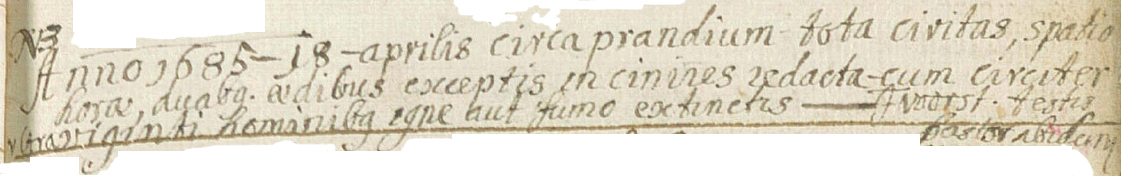 NB
Anno 1685 - 18 - aprilis circa prandium tota civitas, spatio
horæ, duabq. ædibus exceptis in cinires redacta - cum circiter
viginti hominibq igne aut fumo extinctis — A Voorst. testis
pastor ibidem